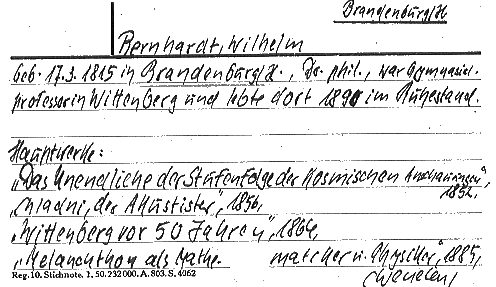 Brandenburg/H
Bernhardt, Wilhelm
geb. 17.3.1815 in Brandenburg/H., Dr. phil., war Gymnasial-
professor in Wittenberg und lebte dort 1890 im Ruhestand.
Hauptwerke:
"Das Unendliche der Stufenfolge der kosmischen Anschauungen",
1852,
"Chladni, der Akustiker", 1856,
"Wittenberg vor 50 Jahren", 1864,
"Melanchthon als Mathematiker u. Physiker", 1885,
Reg. 10. Stichnote. 1, 50. 232000. A. 803. S. 4062